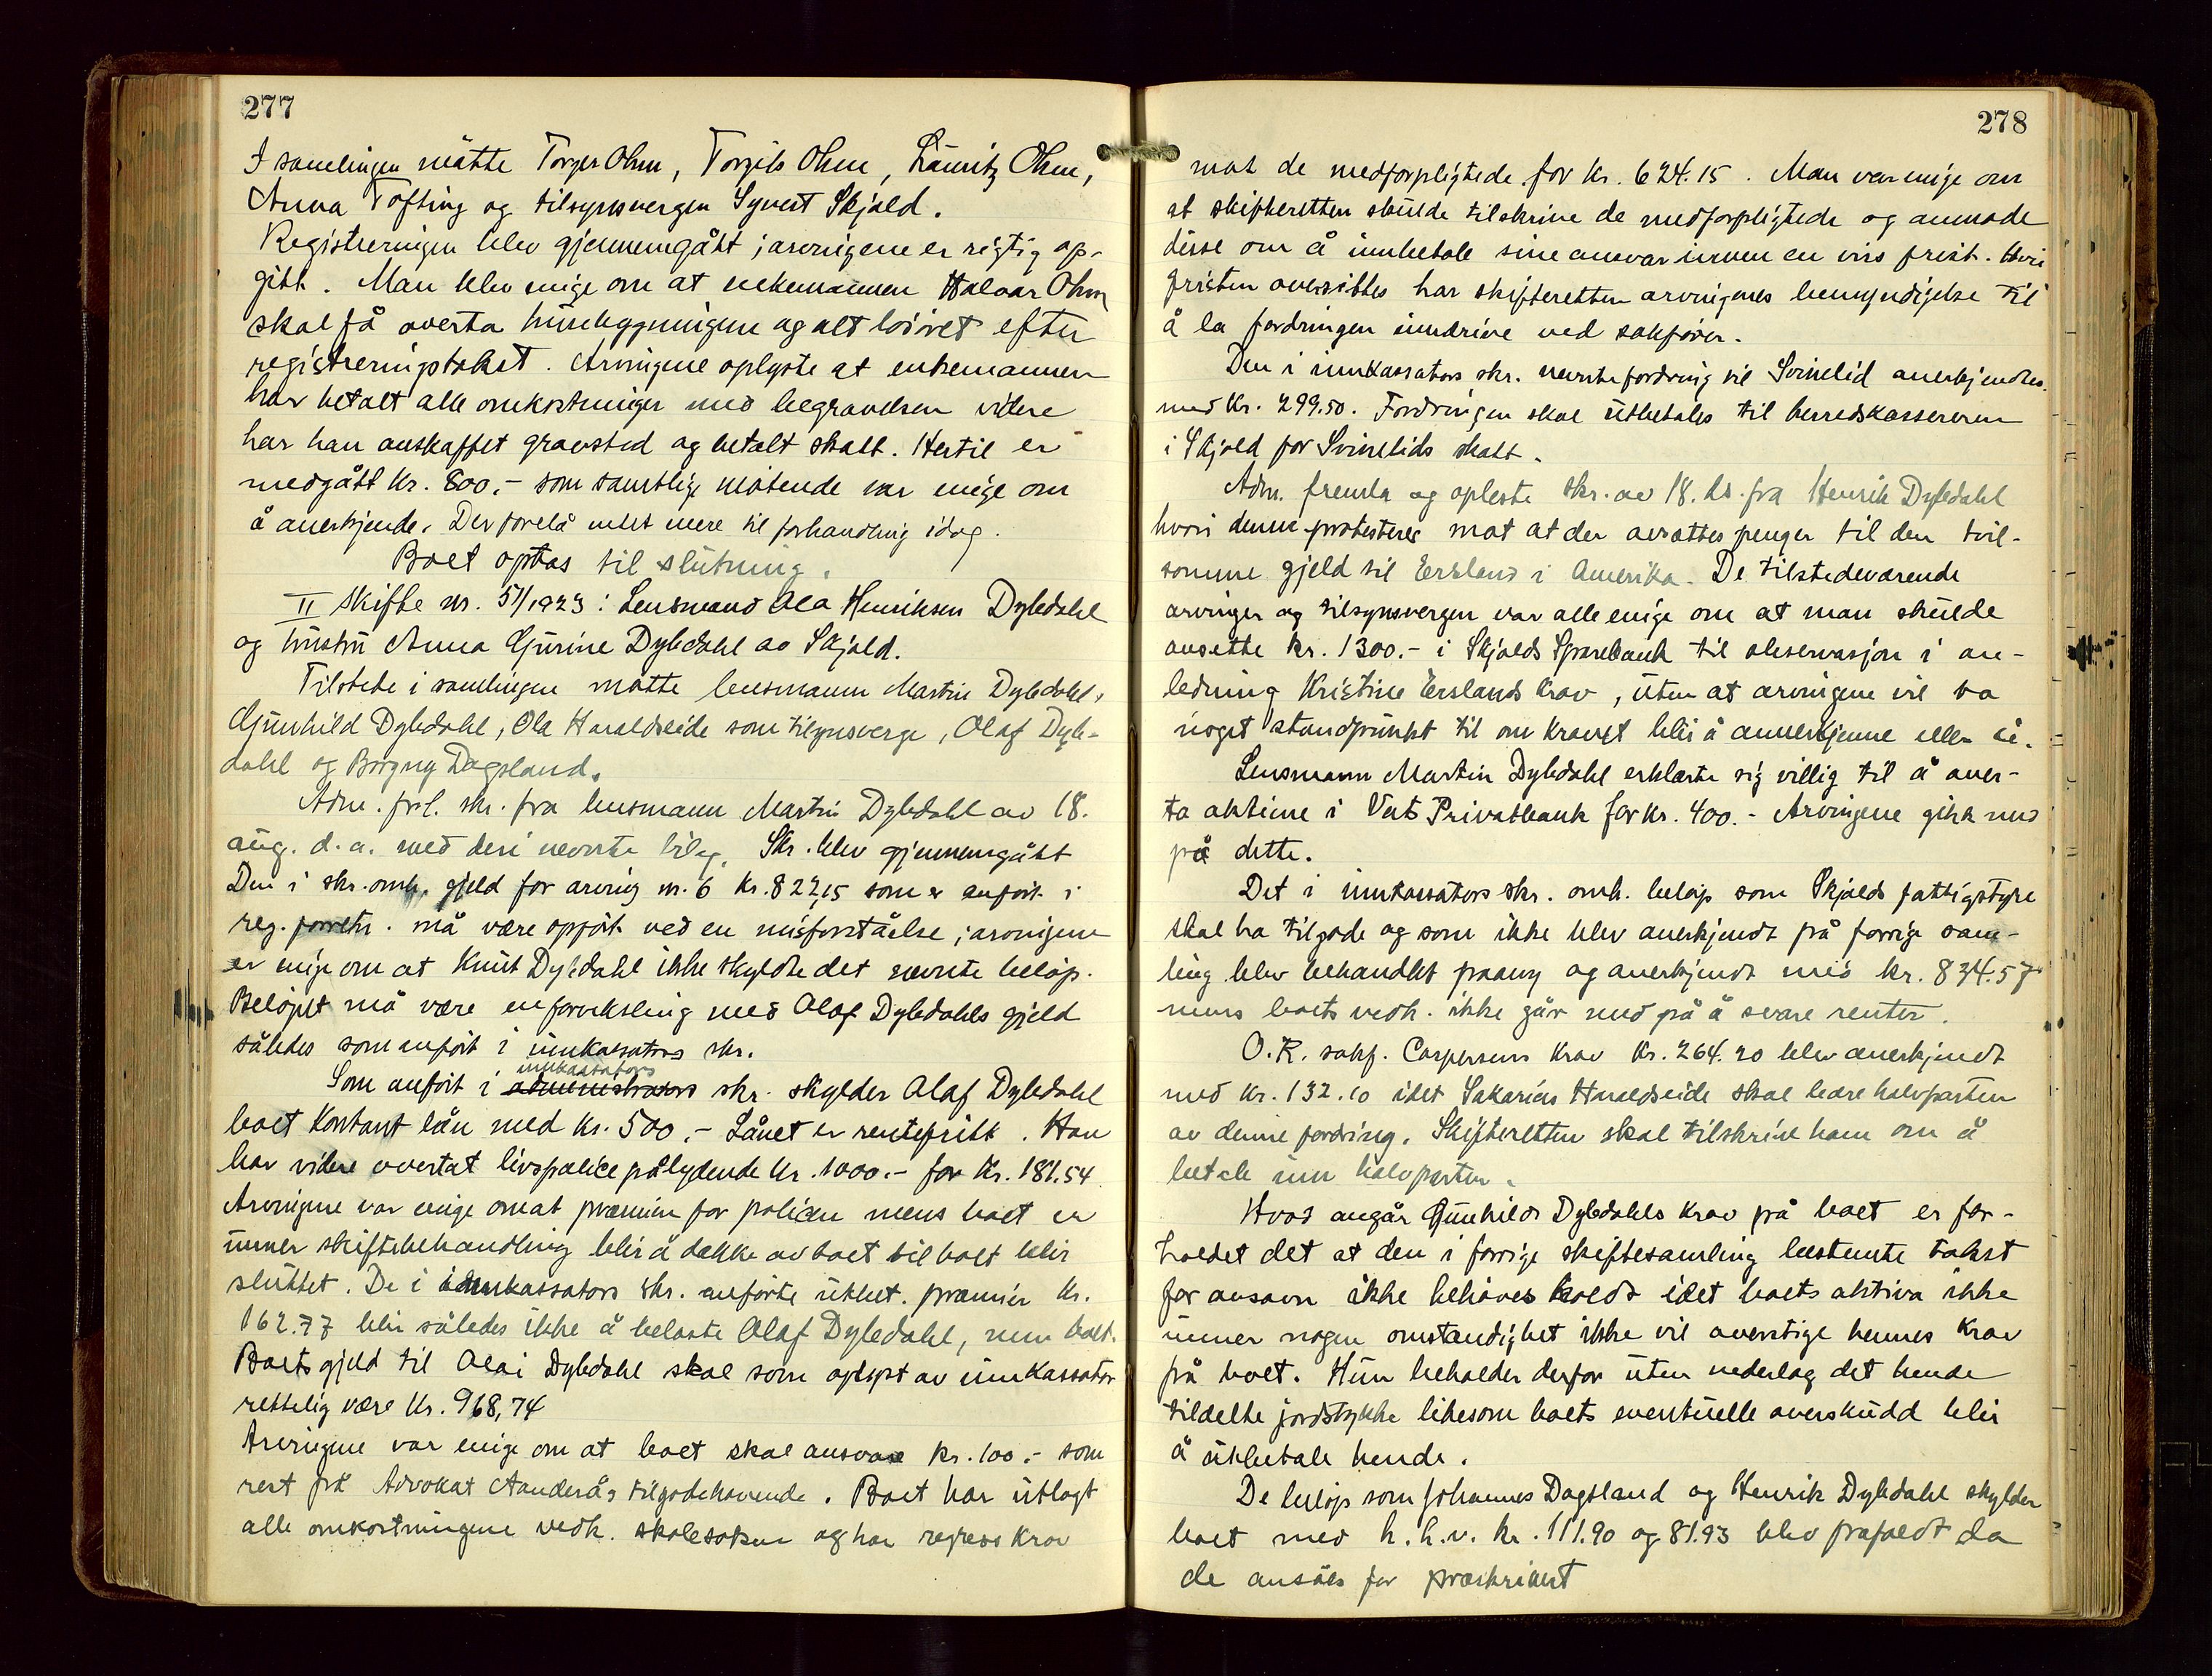 277
I samlingen møtte Torger Ohm, Torgils Ohm, Lauritz Ohm,
Anna Tofting og tilsynsvergen Syvert Skjold.
Registreringen blev gjennemgått; arvingene er rigtig op-
gitt. Man blev enige om at enkemannen Halvar Ohm
skal få overta husebygningene og alt løsøret efter
registreringstakst. Arvingene oplyste at enkemannen
har betalt alle omkostninger med begravelsen videre
har han anskaffet gravsted og betalt skatt. Hertil er
medgått kr. 800.- som samtlige møtende var enige om
å anerkjende. Der forelå intet mere til forhandling idag.
Boet optas til slutning.
II Skifte nr. 5/1923: Lensmand Ola Henriksen Dybdahl
og hustru Anna Gurine Dybdahl av Skjold.
Tilstede i samlingen møtte lensmann Martin Dybdahl,
Gunhild Dybdahl, Ola Haraldseide som tilsynsverge, Olaf Dyb-
dahl og Borgny Dagsland.
Adm. frl. skr. fra lensmann Martin Dybdahl av 18.
aug. d.a. med deri nevnte bileg. Skr. blev gjennemgått
Den i skr. omh. gjeld for arving nr. 6 kr. 827,15 som er anført i
reg. forretn. må være opført ved en misforståelse; arvingene
er enige om at Knut Dybdahl ikke skyldte det nevnte beløp.
Beløpet må være en forveksling med Olaf Dybdahls gjeld
således som anført i innkassators skr.
innkassators
Som anført i administrators skr. skylder Olaf Dybdahl
boet kontant lån med kr. 500.- Lånet er rentefritt. Han
har videre overtat livspolice pålydende kr. 1000.- for kr. 181.54
Arvingene var enige om at præmien for policen mens boet er
under skiftebehandling blir å dekke av boet til boet blir
sluttet. De i innkassators skr. anførte utbet. præmier kr.
162.77 blir således ikke å belaste Olaf Dybdahl, men boet.
Boets gjeld til Olai Dybdahl skal som oplyst av innkassator
rettelig være kr. 968,74
Arvingene var enige om at boet skal ansvare kr. 100.- som
rest på Advokat Aanderås tilgodehavende. Boet har utlagt
alle omkostningene vedk. skolesaken og har regress krav
278
mot de medforpligtede for kr. 624.15. Man var enige om
at skifteretten skulde tilskrive de medforpligtede og anmode
disse om å innbetale sine ansvar innen en viss frist. Hvis
fristen oversittes har skifteretten arvingenes bemyndigelse til
å la fordringen inndrive ved sakfører.
Den i innkassators skr. nevnte fordring til Svinelid anerkjendtes
med kr. 299.50. Fordringen skal utbetales til herredskassereren
i Skjold for Svinelids skatt.
Adm. fremla og opleste skr. av 18. ds. fra Henrik Dybdahl
hvori denne protesterer mot at der avsættes penger til den tvil-
somme gjeld til Ersland i Amerika. De tilstedeværende
arvinger og tilsynsvergen var alle enige om at man skulde
avsette kr. 1300.- i Skjolds Sparebank til observasjon i an-
ledning Kristine Erslands krav, uten at arvingene vil ta
noget standpunkt til om kravet blir å annerkjenne eller ei.
Lensmann Martin Dybdahl erklærte sig villig til å over-
ta aktiene i Vats Privatbank for kr. 400.- Arvingene gikk med
på dette.
Det i innkassators skr. omh. beløp som Skjolds fattigstyre
skal ha tilgode og som ikke blev anerkjendt på forrige sam-
ling blev behandlet paany og anerkjendt med kr. 834.57
mens boets vedk. ikke går med på å svare renter.
O.R. sakf. Caspersens krav kr. 264.20 blev anerkjendt
med kr. 132.10 idet Sakarias Haraldseide skal bære halvparten
av denne fordring. Skifteretten skal tilskrive ham om å
betale inn halvparten.
Hvad angår Gunhild Dybdahls krav på boet er for-
holdet det at den i forrige skiftesamling bestemte takst
for avsavn ikke behøves holdt idet boets aktiva ikke
under nogen omstendighet ikke vil overstige hennes krav
på boet. Hun beholder derfor uten vederlag det hende
tildelte jordstykke likesom boets eventuelle overskudd blir
å utbetale hende.
De beløp som Johannes Dagsland og Henrik Dybdahl skylder
boet med h.h.v. kr. 111.90 og 81.93 blev frafaldt da
de ansåes for præskrivert